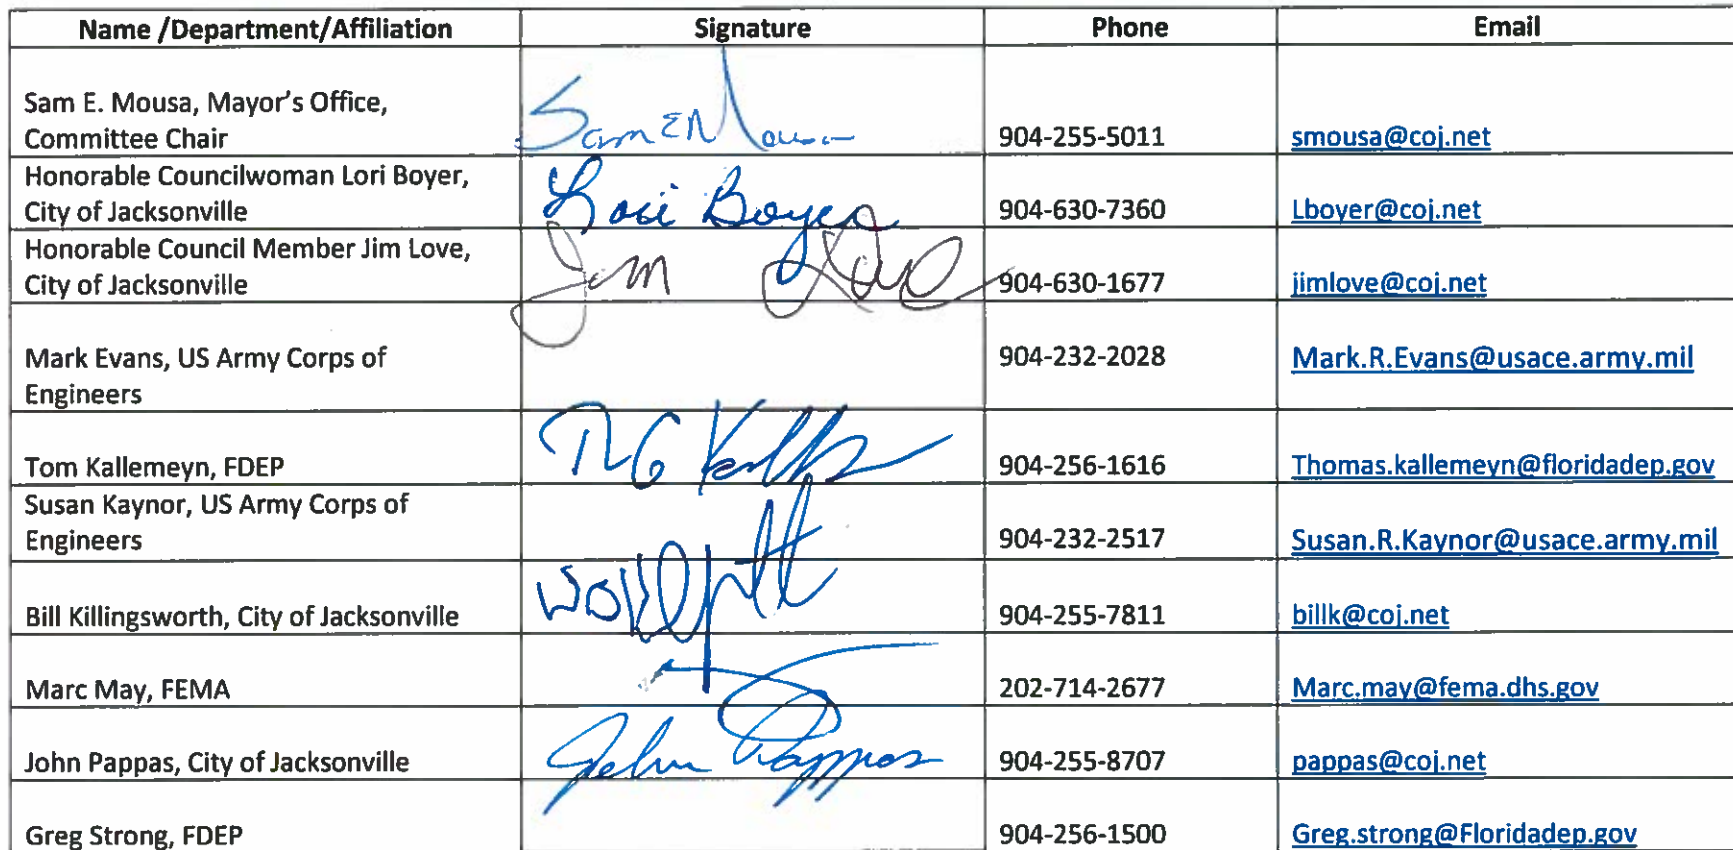 Name /Department/Affiliation Signature Phone Email
Sam E. Mousa, Mayor's Office,
Committee Chair Sam E Mousa 904-255-5011 smousa@coj.net
Honorable Councilwoman Lori Boyer,
City of Jacksonville Lori Boyer 904-630-7360 Lboyer@coj.net
Honorable Council Member Jim Love,
City of Jacksonville Jim Love 904-630-1677 jimlove@coj.net
Mark Evans, US Army Corps of
Engineers 904-232-2028 Mark.R.Evans@usace.army.mil
Tom Kallemeyn, FDEP 904-256-1616 Thomas.kallemeyn@floridadep.gov
Susan Kaynor, US Army Corps of
Engineers 904-232-2517 Susan.R.Kaynor@usace.army.mil
Bill Killingsworth, City of Jacksonville 904-255-7811 billk@coj.net
Marc May, FEMA 202-714-2677 Marc.may@fema.dhs.gov
John Pappas, City of Jacksonville John Pappas 904-255-8707 pappas@coj.net
Greg Strong, FDEP 904-256-1500 Greg.strong@Floridadep.gov